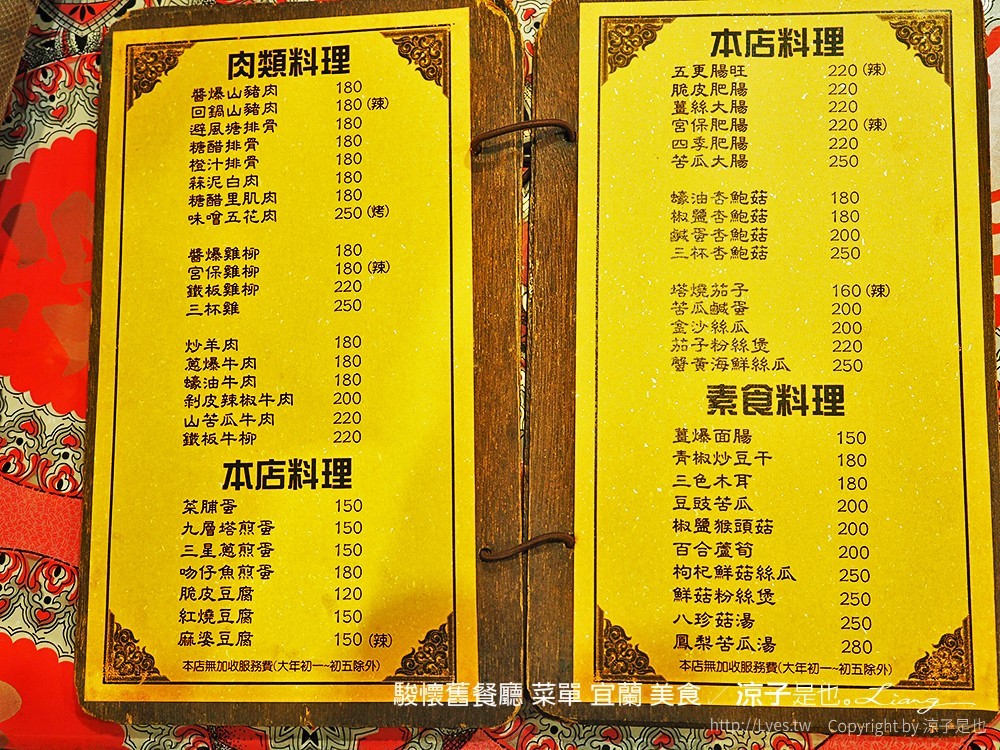 肉類料理
醬爆山豬肉 180
回鍋山豬肉 180 (辣)
避風塘排骨 180
糖醋排骨 180
橙汁排骨 180
蒜泥白肉 180
糖醋里肌肉 180
味噌五花肉 250 (烤)
醬爆雞柳 180
宮保雞柳 180 (辣)
鐵板雞柳 220
三杯雞 250
炒羊肉 180
蔥爆牛肉 180
蠔油牛肉 180
剝皮辣椒牛肉 200
山苦瓜牛肉 220
鐵板牛柳 220
本店料理
菜脯蛋 150
九層塔煎蛋 150
三星蔥煎蛋 150
吻仔魚煎蛋 180
脆皮豆腐 120
紅燒豆腐 150
麻婆豆腐 150 (辣)
本店無加收服務費(大年初一~初五除外)
本店料理
五更腸旺 220 (辣)
脆皮肥腸 220
薑絲大腸 220
宮保肥腸 220 (辣)
四季肥腸 220
苦瓜大腸 250
蠔油杏鮑菇 180
椒鹽杏鮑菇 180
鹹蛋杏鮑菇 200
三杯杏鮑菇 250
塔燒茄子 160 (辣)
苦瓜鹹蛋 200
金沙絲瓜 200
茄子粉絲煲 220
蟹黃海鮮絲瓜 250
素食料理
薑爆面腸 150
青椒炒豆干 180
三色木耳 180
豆豉苦瓜 200
椒鹽猴頭菇 200
百合蘆筍 200
枸杞鮮菇絲瓜 250
鮮菇粉絲煲 250
八珍菇湯 250
鳳梨苦瓜湯 280
本店無加收服務費(大年初一~初五除外)
駿懷舊餐廳 菜單 宜蘭 美食 / 涼子是也。Liang
http://Lyes.tw Copyright by 涼子是也